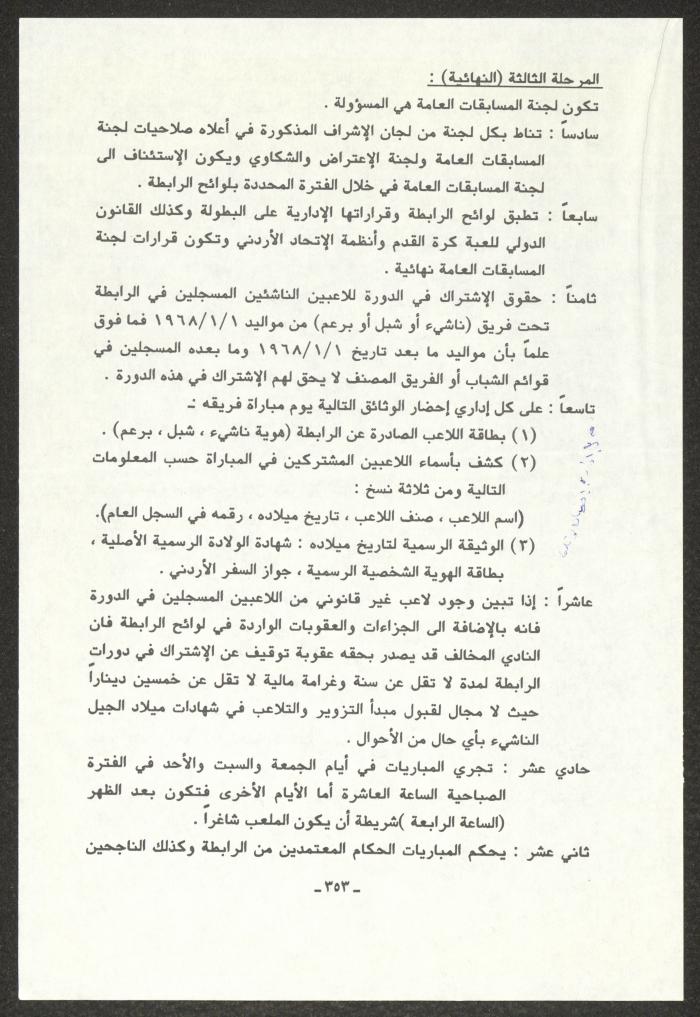 المرحلة الثالثة (النهائية) :
تكون لجنة المسابقات العامة هي المسؤولة .
سادساً : تناط بكل لجنة من لجان الإشراف المذكورة في أعلاه صلاحيات لجنة
المسابقات العامة ولجنة الإعتراض والشكاوي ويكون الإستئناف الى
لجنة المسابقات العامة في خلال الفترة المحددة بلوائح الرابطة .
سابعاً : تطبق لوائح الرابطة وقراراتها الإدارية على البطولة وكذلك القانون
الدولي للعبة كرة القدم وأنظمة الإتحاد الأردني وتكون قرارات لجنة
المسابقات العامة نهائية .
ثامناً : حقوق الإشتراك في الدورة للاعبين الناشئين المسجلين في الرابطة
تحت فريق (ناشيء أو شبل أو برعم) من مواليد ١٩٦٨/١/١ فما فوق
علماً بأن مواليد ما بعد تاريخ ١٩٦٨/١/١ وما بعده المسجلين في
قوائم الشباب أو الفريق المصنف لا يحق لهم الإشتراك في هذه الدورة .
تاسعاً : على كل إداري إحضار الوثائق التالية يوم مباراة فريقه :ـ
(١) بطاقة اللاعب الصادرة عن الرابطة (هوية ناشيء ، شبل ، برعم) .
(٢) كشف بأسماء اللاعبين المشتركين في المباراة حسب المعلومات
التالية ومن ثلاثة نسخ :
(اسم اللاعب ، صنف اللاعب ، تاريخ ميلاده ، رقمه في السجل العام).
(٣) الوثيقة الرسمية لتاريخ ميلاده : شهادة الولادة الرسمية الأصلية ،
بطاقة الهوية الشخصية الرسمية ، جواز السفر الأردني .
عاشراً : إذا تبين وجود لاعب غير قانوني من اللاعبين المسجلين في الدورة
فانه بالإضافة الى الجزاءات والعقوبات الواردة في لوائح الرابطة فان
النادي المخالف قد يصدر بحقه عقوبة توقيف عن الإشتراك في دورات
الرابطة لمدة لا تقل عن سنة وغرامة مالية لا تقل عن خمسين ديناراً
حيث لا مجال لقبول مبدأ التزوير والتلاعب في شهادات ميلاد الجيل
الناشيء بأي حال من الأحوال .
حادي عشر : تجري المباريات في أيام الجمعة والسبت والأحد في الفترة
الصباحية الساعة العاشرة أما الأيام الأخرى فتكون بعد الظهر
(الساعة الرابعة )شريطة أن يكون الملعب شاغراً .
ثاني عشر : يحكم المباريات الحكام المعتمدين من الرابطة وكذلك الناجحين
ـ ٣٥٣ ـ